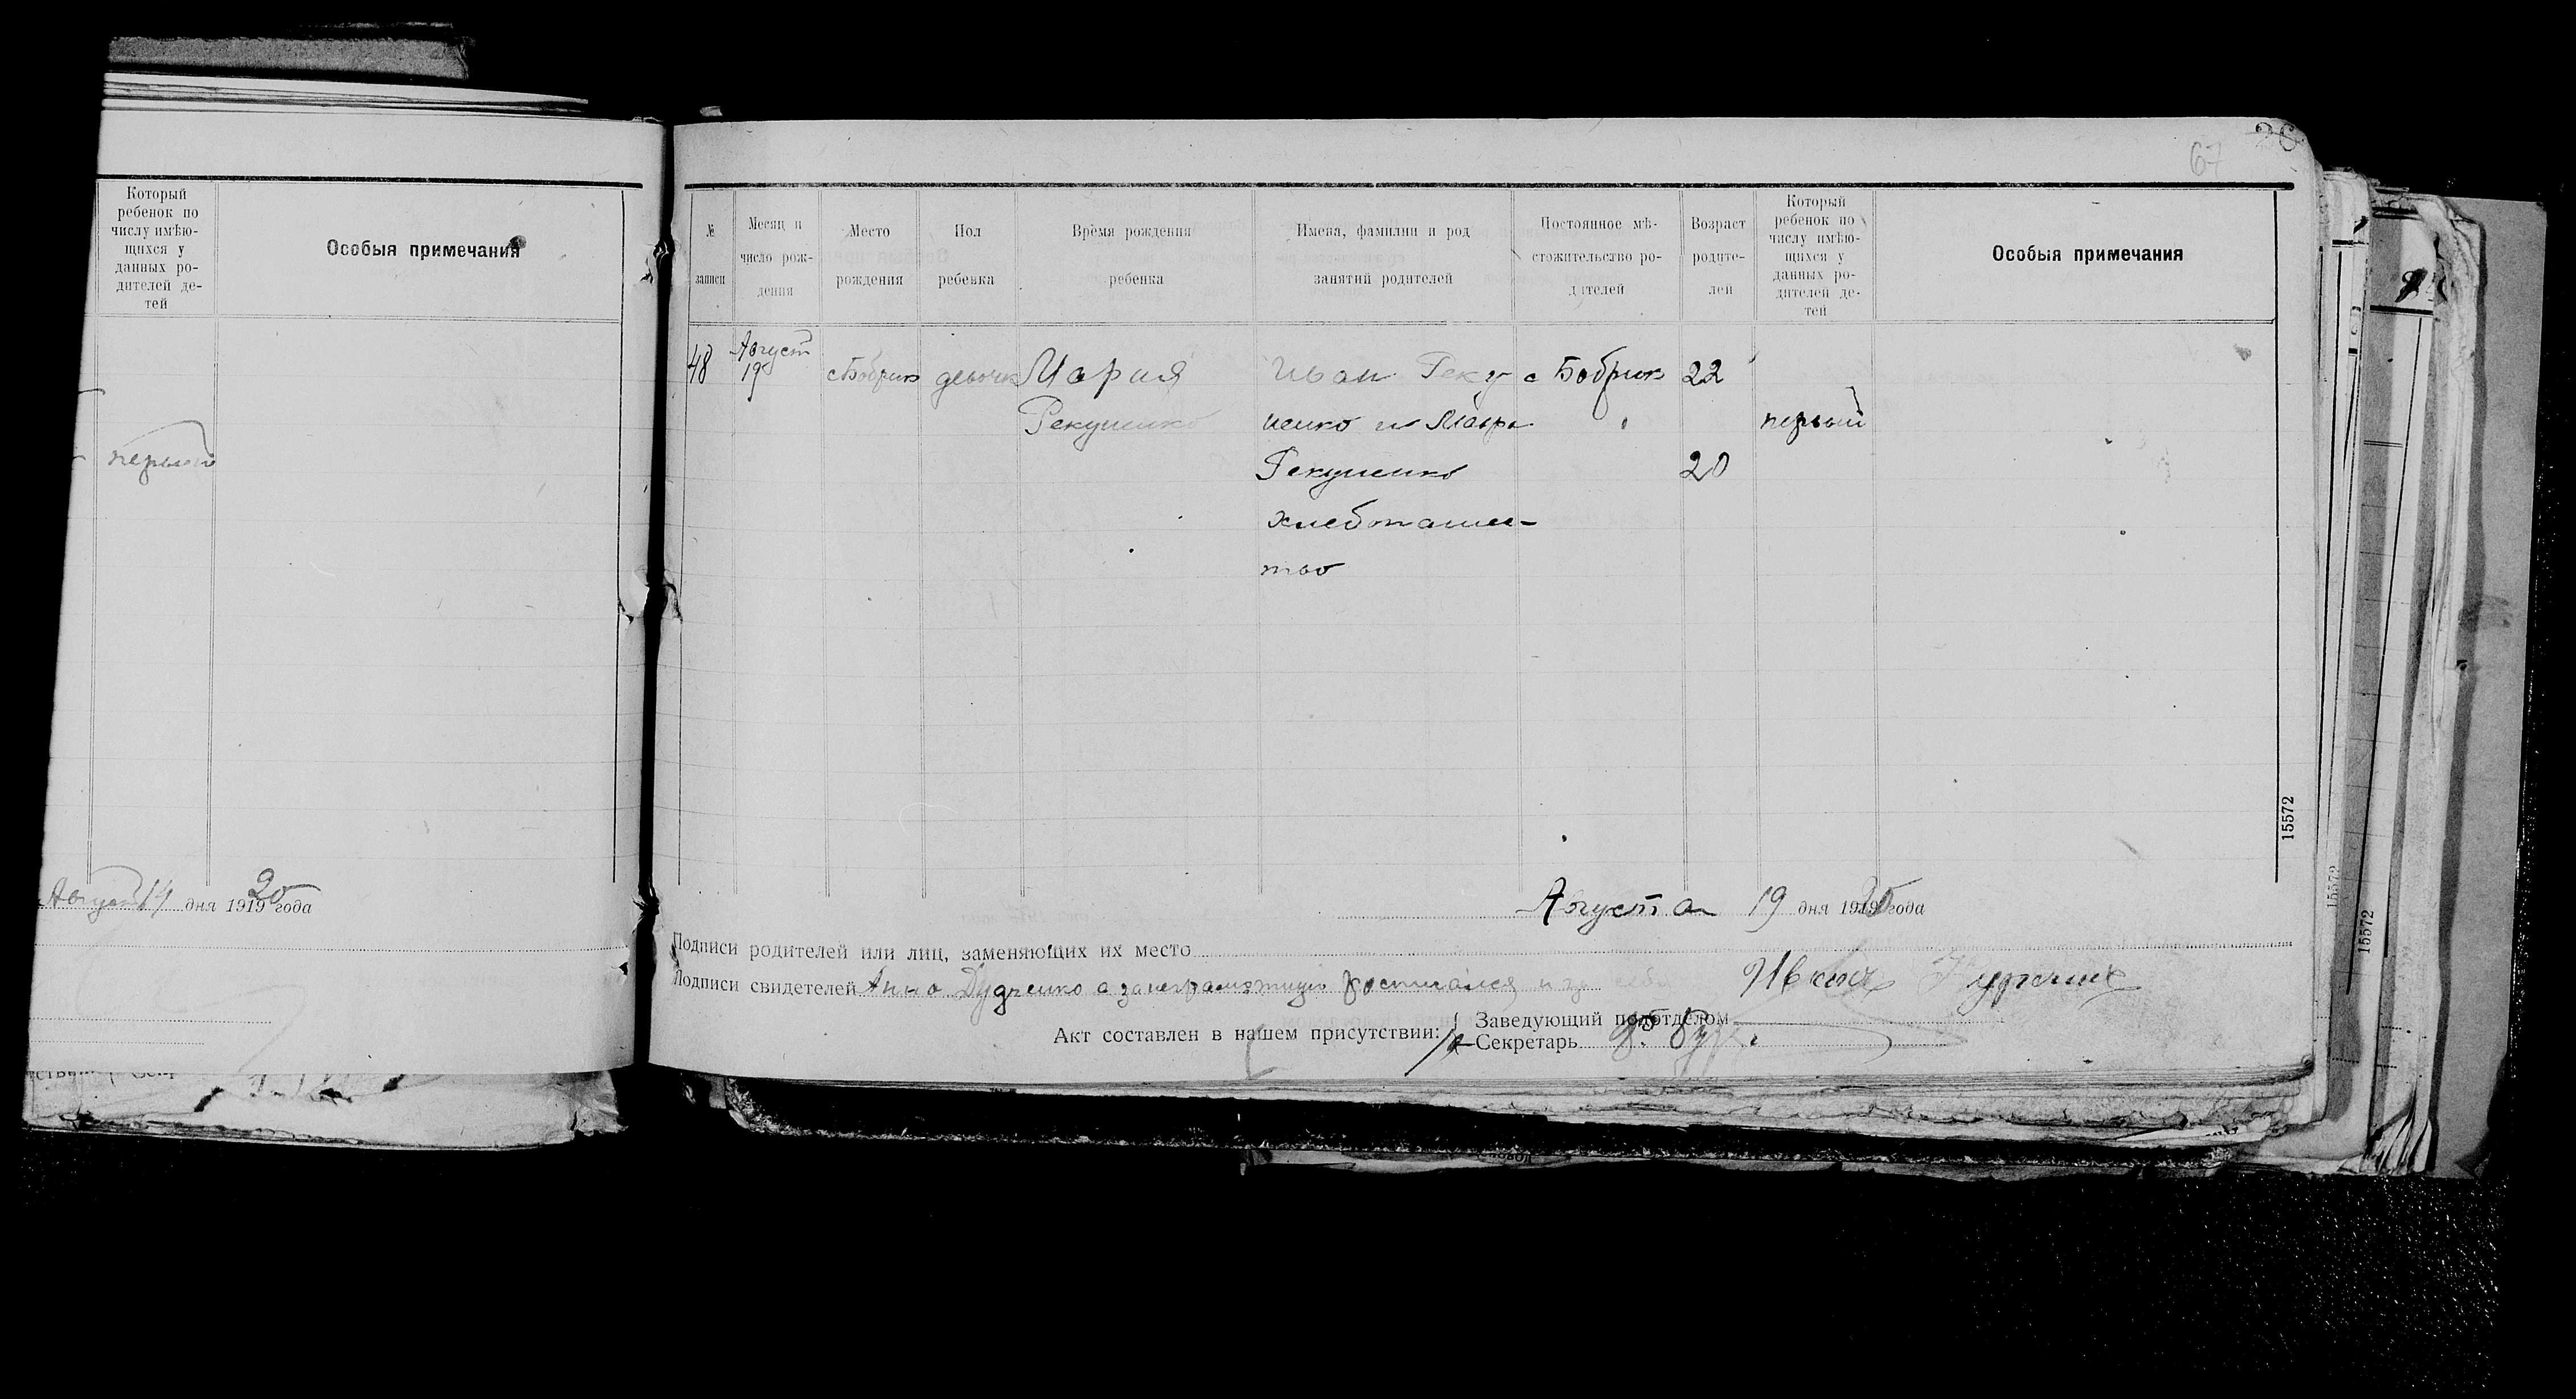 Который
ребенок по
числу имѣю-
щихся у
данных ро-
дителей де-
тей
Особыя примечания
первый
Август 14 дня 1919 20 года
67
26
№
записи
Месяц и
число рож-
дения
Место
рождения
Пол
ребенка
Время рождения
ребенка
Имена, фамилии и род
занятий родителей
Постоянное мѣ-
стожительство ро-
дителей
Возраст
родите-
лей
Который
ребенок по
числу имѣю-
щихся у
данных ро-
дителей де-
тей
Особыя примечания
48
Август
19
с Бобрик
девочка
Мария
Рекуненко
Иван Реку
ненко и Мавра
Рекуненко
хлебопаше-
тво
с Бобрик
"
22
20
первый
15572
Августа 19 дня 1919 20 года
Подписи родителей или лиц, заменяющих их место
Подписи свидетелей Анна Дудченко а за неграмотную и за себя
Акт составлен в нашем присутствии:
Заведующий подотделом
Секретарь
15572
15572